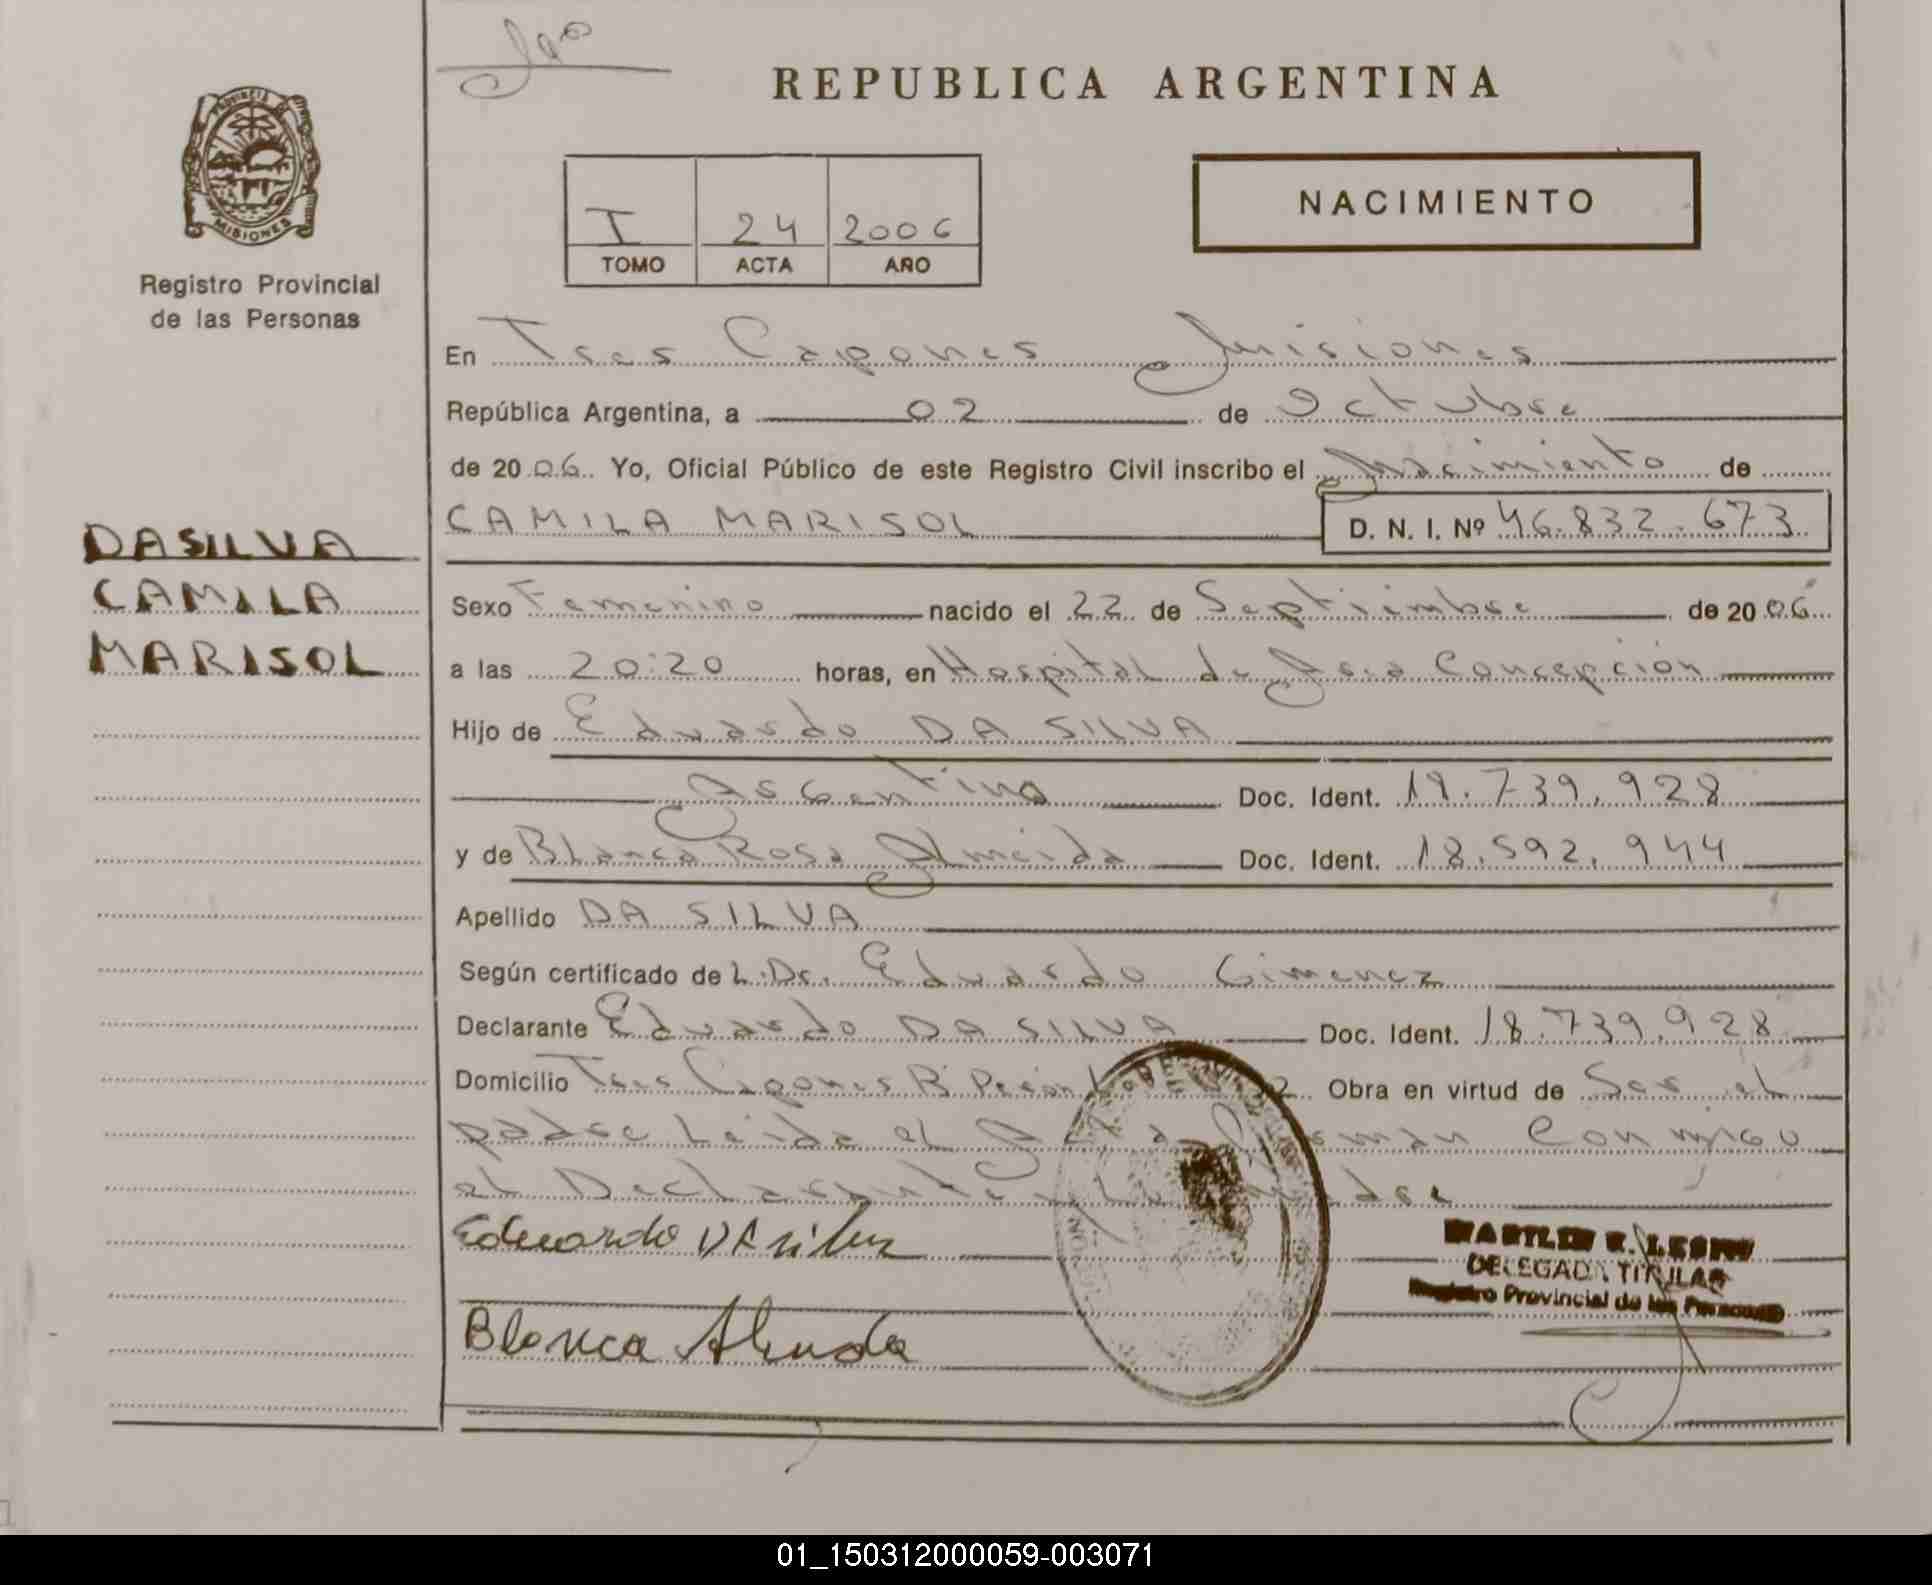 REPUBLICA ARGENTINA
PROVINCIA DE
MISIONES
Registro Provincial
de las Personas
NACIMIENTO
I 24 2006
TOMO ACTA AÑO
DA SILVA
CAMILA
MARISOL
En Tres Capones Misiones
República Argentina, a 02 de Octubre
de 2006. Yo, Oficial Público de este Registro Civil inscribo el Nacimiento de
CAMILA MARISOL D. N. I. Nº 46.832.673
Sexo Femenino nacido el 22 de Septiimbre de 2006
a las 20:20 horas, en Hospital de Concepción
Hijo de Eduardo DA SILVA
Argentino Doc. Ident. 18.739.928
y de Blanca Rosa Almeida Doc. Ident. 18.592.944
Apellido DA SILVA
Según certificado de L. Dr. Eduardo Gimenez
Declarante Eduardo DA SILVA Doc. Ident. 18.739.928
Domicilio Tres Capones Bº Perón Obra en virtud de Ser el
padre Leida el Conmigo
el Declarante
Eduardo DA Silva
DELEGADA TITULAR
Registro Provincial de las Personas
Blanca Almeida
01_150312000059-003071